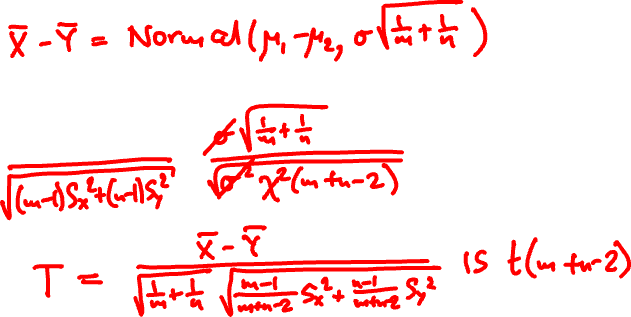 X̄ - Ȳ = Normal(μ₁-μ₂, σ√(1/m + 1/n))
σ√(1/m + 1/n)
√((m-1)Sₓ²+(n-1)Sᵧ²) √(σ² χ²(m+n-2))
T = (X̄ - Ȳ) / (√(1/m + 1/n) √((m-1)/(m+n-2) Sₓ² + (n-1)/(m+n-2) Sᵧ²)) is t(m+n-2)